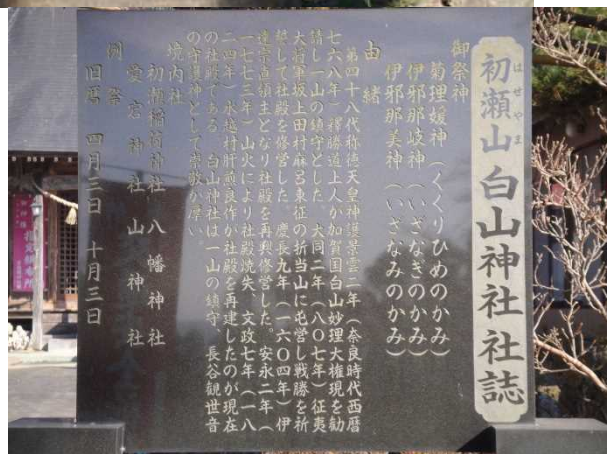 はせやま
初瀬山 白山神社 社誌
御祭神
菊理媛神（くくりひめのかみ）
伊邪那岐神（いざなぎのかみ）
伊邪那美神（いざなみのかみ）
由緒
第四十八代称徳天皇神護景雲二年（奈良時代西暦
七六八年）釋勝道上人が加賀国白山妙理大権現を勧
請し一山の鎮守とした 大同二年（八〇七年）征夷
大将軍坂上田村麻呂東征の折当山に屯営し戦勝を祈
願して社殿を修営した。慶長九年（一六〇四年）伊
達宗直領主となり社殿を再興修営した。安永二年（
一七七三年）山火により社殿焼失、文政七年（一八
二四年）水越村肝煎良作が社殿を再建したのが現在
の社殿である 白山神社は一山の鎮守、長谷観世音
の守護神として崇敬が厚い。
境内社
初瀬稲荷神社 八幡神社
愛宕神社 山神社
例祭
旧暦 四月三日 十月三日